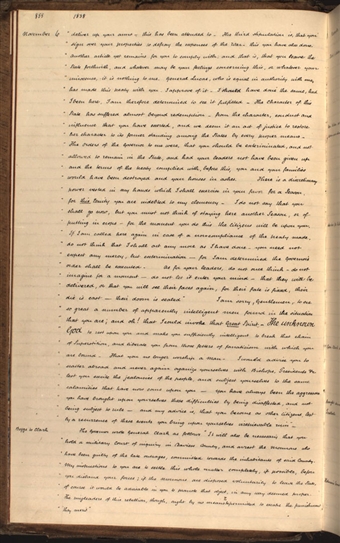 818 1838
November 6 "deliver up your arms – this has been attended to. The third stipulation is, that you
" sign over your properties to defray the expenses of the War – this you have also done.
" Another article yet remains for you to comply with, and that is, that you leave the
" State forthwith, and whatever may be your feelings concerning this, or whatever your
" innocence, it is nothing to me. General Lucas, who is equal in authority with me,
" has made this treaty with you. I approve of it. I should have done the same, had
" I been here. I am therefore determined to see it fulfilled. The character of this
" State has suffered almost beyond redemption – from the character, conduct and
" influence that you have exerted, and we deem it an act of justice to restore
" her character to its former standing among the States by every proper means.
" The orders of the Governor to me were, that you should be exterminated, and not
" allowed to remain in the State, and had your leaders not been given up
" and the terms of the treaty complied with, before this, you and your families
" would have been destroyed and your houses in ashes. There is a discretionary
" power vested in my hands which I shall exercise in your favor for a season,
" for this lenity you are indebted to my clemency. I do not say that you
" shall go now, but you must not think of staying here another season, or of
" putting in crops – for the moment you do this the Citizens will be upon you.
" If I am called here again in case of a noncompliance of the treaty made,
" do not think that I shall act any more as I have done – you need not
" expect any mercy, but extermination – for I am determined the Governors
" order shall be executed. As for your leaders, do not once think – do not
" imagine for a moment – do not let it enter your mind – that they will be
" delivered, or that you will see their faces again, for their fate is fixed, their
" die is cast – their doom is sealed" I am sorry, Gentlemen, to see
" so great a number of apparently intelligent men found in the situation
" that you are; and oh! that I could invoke that Great Spirit – The unknown
" God to rest upon you, and make you sufficiently intelligent to break that chain
" of Superstition, and liberate you from those fetters of fanaticism with which you
" are bound – that you no longer worship a Man. I would advise you to
" scatter abroad and never again organize yourselves with Bishops, Presidents &c
" lest you excite the jealousies of the people, and subject yourselves to the same
" calamities that have now come upon you – you have always been the aggressors
" you have brought upon yourselves these difficulties by being disaffected, and not
" being subject to rule – and my advice is, that you become as other Citizens, lest
" by a recurrence of these events you bring upon yourselves irretrievable ruin –
Boggs to Clark The Governor wrote General Clark as follows "It will also be necessary that you
" hold a military Court of enquiry in Daviess County, and arrest the Mormons who
" have been guilty of the late outrages, committed towards the inhabitants of said County.
" My instructions to you are to settle this whole matter completely, if possible, before
" you disband your forces; if the Mormons are disposed voluntarily, to leave the State
" of course it would be advisable in you to promote that object, in any way deemed proper.
" The ringleaders of this rebellion, though, ought by no means to be permitted to escape the punishment
" they merit"